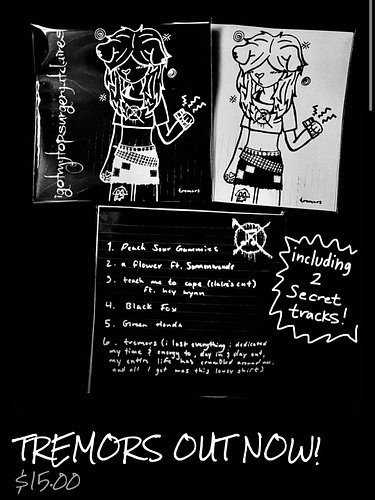 igotmytopsurgeryatclaires
tremors
tremors
1. Peach Sour Gummies
2. a flower ft.
3. teach me to cope (claire's cut)
ft. hey wynn
4. Black Fox
5. Green Honda
6. tremors (i lost everything i dedicated
my time & energy to, day in & day out,
my entire life has crumbled around me,
and all i got was this lousy shirt)
including
2
Secret
tracks!
TREMORS OUT NOW!
$15.00